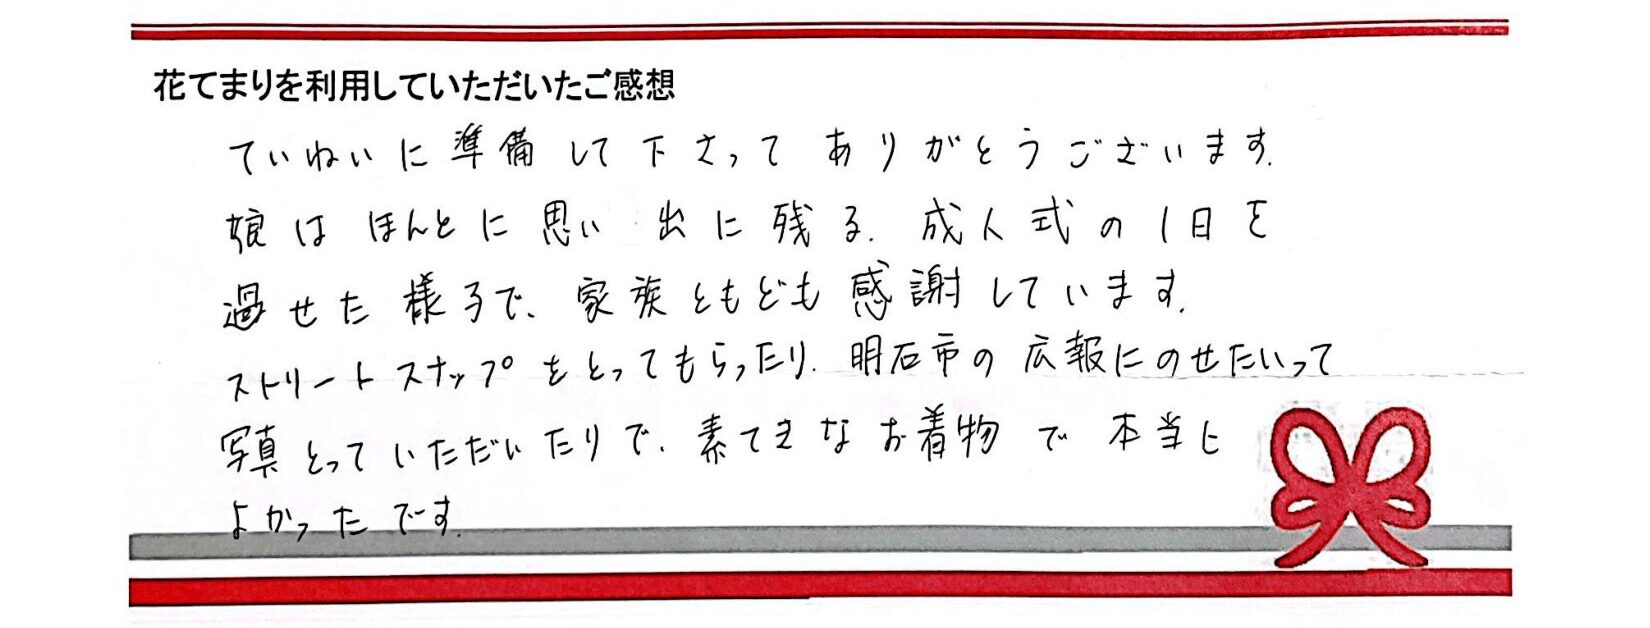 花てまりを利用していただいたご感想
ていねいに準備して下さってありがとうございます.
娘はほんとに思い出に残る.成人式の1日を
過せた様子で、家族ともども感謝しています.
ストリートスナップをとってもらったり.明石市の広報にのせたいって
写真とっていただいたりで.素てきなお着物で本当に
よかったです.